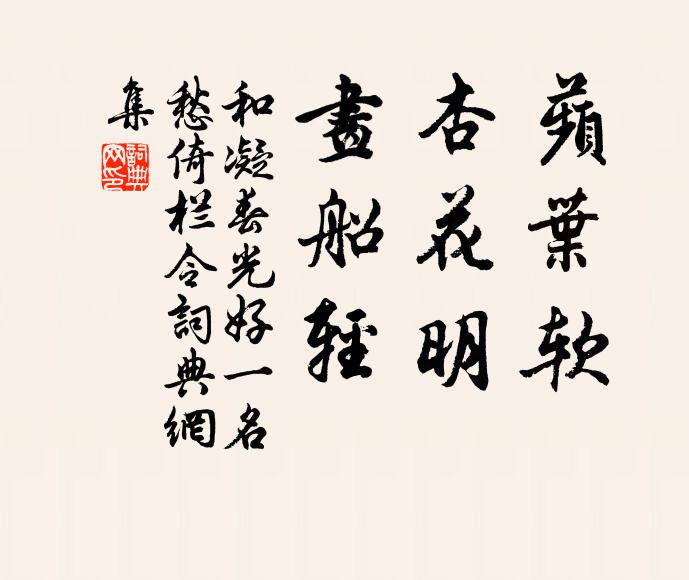 蘋葉软
杏花明
畫船輕
和凝春光好一名
愁倚栏令詞典網
集
詞典網印